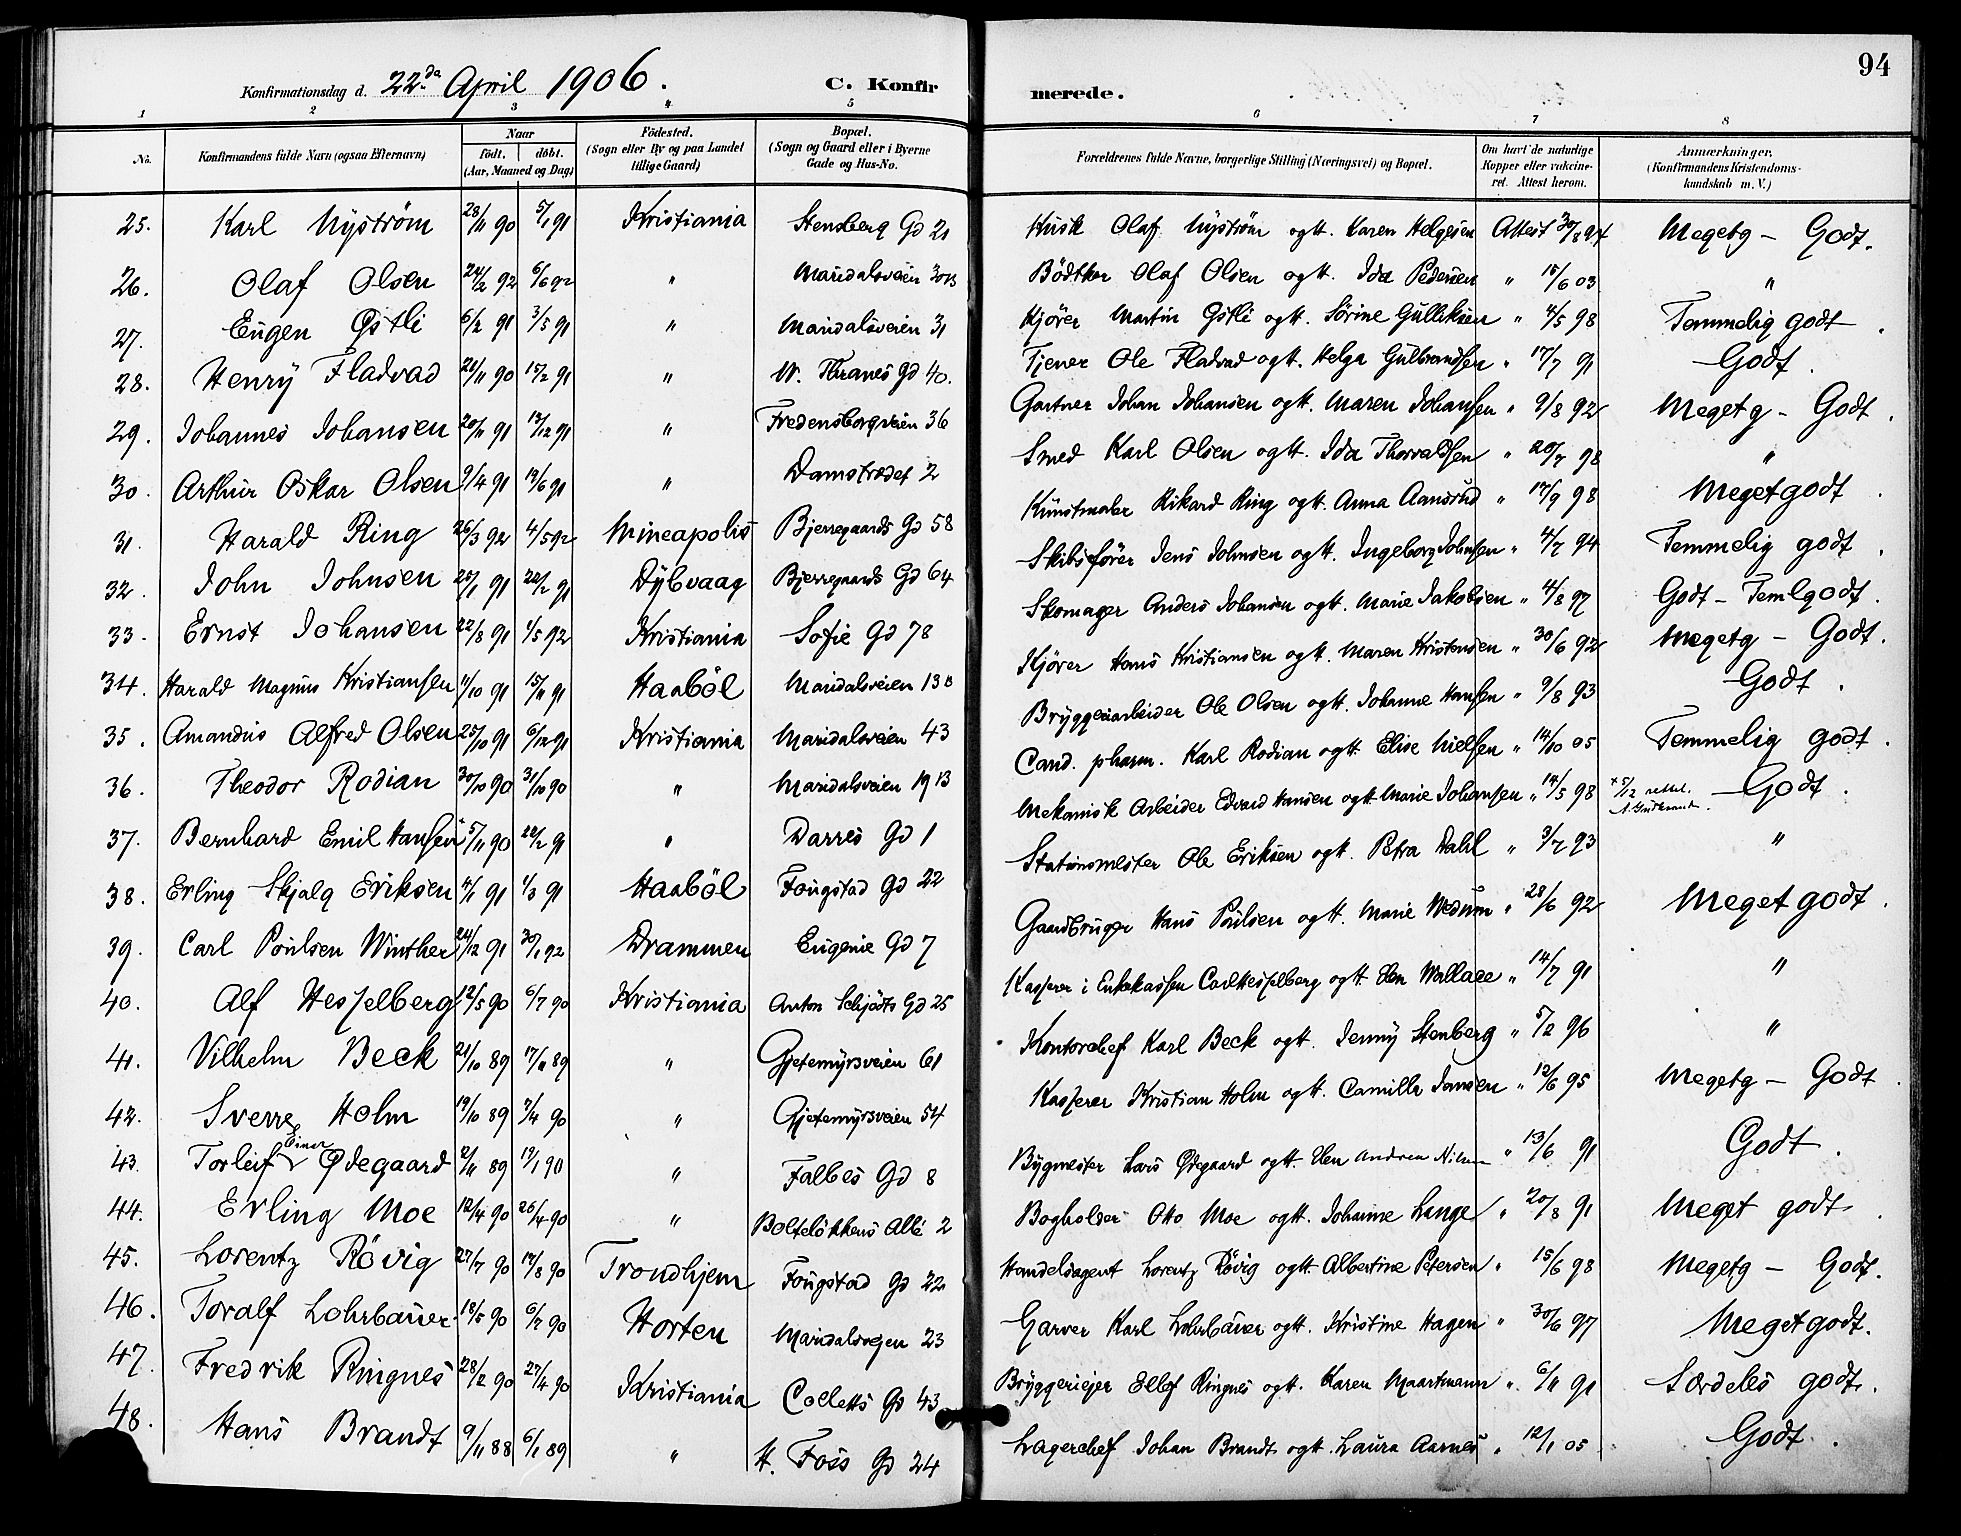 94
Konfirmationsdag d. 22de April 1906. C. Konfirmerede.
1 2 3 4 5 6 7 8
No. Konfirmandens fulde Navn (ogsaa Efternavn) Naar Födt. döbt. (Aar, Maaned og Dag) Födested. (Sogn eller By og paa Landet tillige Gaard) Bopæl. (Sogn og Gaard eller i Byerne Gade og Hus-No. Forældrenes fulde Navne, borgerlige Stilling (Næringsvei) og Bopæl. Om havt de naturlige Kopper eller vaksineret. Attest herom. Anmærkninger, (Konfirmandens Kristendomskundskab m. V.)
25. Karl Nyström 28/11 90 5/1 91 Kristiania Stensberg Gd 21 Kusk Olaf Nyström og H. Karen Helgesen Attest 30/8 94 Megetg - Godt.
26. Olaf Olsen 24/2 92 6/6 92 " Maridalsveien 30B Bödtker Olaf Olsen og H. Ida Pedersen " 15/6 03 "
27. Eugen Østli 6/2 91 3/5 91 " Maridalsveien 31 Kjörer Martin Østli og H. Sörine Gulliksen " 4/5 98 Temmelig godt.
28. Henry Fladvad 21/11 90 15/2 91 " M. Thranes Gd 40. Tjener Ole Fladvad og H. Helga Gulbrandsen " 17/7 91 Godt.
29. Johannes Johansen 20/11 91 13/12 91 " Fredensborgveien 36 Gartner Johan Johansen og H. Maren Johansen " 9/8 92 Megetg - Godt.
30. Arthur Oskar Olsen 9/4 91 14/6 91 " Damstrædet 2 Smed Karl Olsen og H. Ida Thorvaldsen " 20/7 98 "
31. Harald Ring 26/3 92 4/5 92 Mineapolis Bjerregaards Gd 58 Kunstmaler Rikard Ring og H. Anna Aamsrud " 17/9 98 Meget godt.
32. John Johnsen 25/1 91 22/2 91 Dybvaag Bjerregaards Gd 64 Skibsförer Jens Johnsen og H. Ingeborg Johnsen " 4/7 94 Temmelig godt.
33. Ernst Johansen 22/8 91 1/5 92 Kristiania Sofie Gd 78 Skomager Anders Johansen og H. Marie Jakobsen " 4/8 97 Godt - Temlgodt.
34. Harald Magnus Kristiansen 11/10 91 15/11 91 Haaböl Maridalsveien 13B Kjörer Hans Kristiansen og H. Maren Kristensen " 30/6 92 Megetg - Godt.
35. Amandus Alfred Olsen 25/10 91 6/12 91 Kristiania Maridalsveien 43 Bryggeriarbeider Ole Olsen og H. Johanne Hansen " 9/8 93 Godt.
36. Theodor Rodian 30/10 90 31/10 90 " Maridalsveien 19 B Cand. pharm. Karl Rodian og H. Elise Nielsen " 14/10 05 Temmelig godt.
37. Bernhard Emil Hansen x 5/11 90 22/2 91 " Darres Gd 1 Mekanisk Arbeider Edvard Hansen og H. Marie Johansen " 14/5 98 x 5/12 rettet. Godt.
38. Erling Skjalg Eriksen 4/1 91 1/3 91 Haaböl Fougstad Gd 22 Stationsmester Ole Eriksen og H. Petra Dahl " 3/7 93 "
39. Carl Poulsen Winther 24/12 91 30/1 92 Drammen Eugenie Gd 7 Gaardbruger Hans Poulsen og H. Marie Medum " 28/6 92 Meget godt.
40. Alf Hesselberg 12/5 90 6/7 90 Kristiania Anton Schjödts Gd 25 Kasserer i Enkekassen Carl Hesselberg og H. Elen Wallace " 14/7 91 "
41. Vilhelm Beck 21/10 89 17/11 89 " Gjetemyrsveien 61 Kontorchef Karl Beck og H. Jenny Stenberg " 5/2 96 "
42. Sverre Holm 19/10 89 7/4 90 " Gjetemyrsveien 54 Kasserer Kristian Holm og H. Camilla Jansen " 12/6 95 Megetg - Godt.
43. Torleif Einar Ødegaard 2/11 89 19/1 90 " Falbes Gd 8 Bygmester Lars Ødegaard og H. Elen Andrea Nilsen " 13/6 91 Godt.
44. Erling Moe 12/4 90 26/4 90 " Bolteløkkens Allé 2 Bogholder Otto Moe og H. Johanne Lange " 20/8 91 Meget godt.
45. Lorentz Rövig 27/7 90 17/8 90 Trondhjem Fougstad Gd 22 Handelsagent Lorentz Rövig og H. Albertine Petersen " 15/6 98 Megetg - Godt.
46. Toralf Lohrbauer 18/5 90 6/7 90 Horten Maridalsvegen 23 Garver Karl Lohrbauer og H. Kristine Hagen " 30/6 97 Meget godt.
47. Fredrik Ringnes 28/2 90 27/4 90 Kristiania Colletts Gd 43 Bryggerieier Ellef Ringnes og H. Karen Maartmann " 6/11 91 Særdeles godt.
48. Hans Brandt 9/11 88 6/1 89 " H. Foss Gd 24 Lagerchef Johan Brandt og H. Laura Aarnes " 12/1 05 Godt.